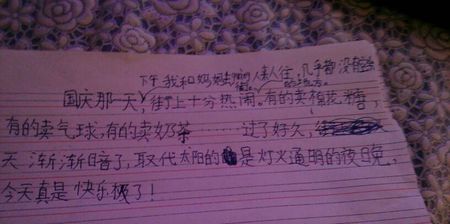 下午 我和妈妈 人来人往,几乎都没
国庆那一天,街上十分热闹。有的卖棉花糖,
有的卖气球,有的卖奶茶……过了好久,
天渐渐暗了,取代太阳的是灯火通明的夜晚。
今天真是快乐极了!